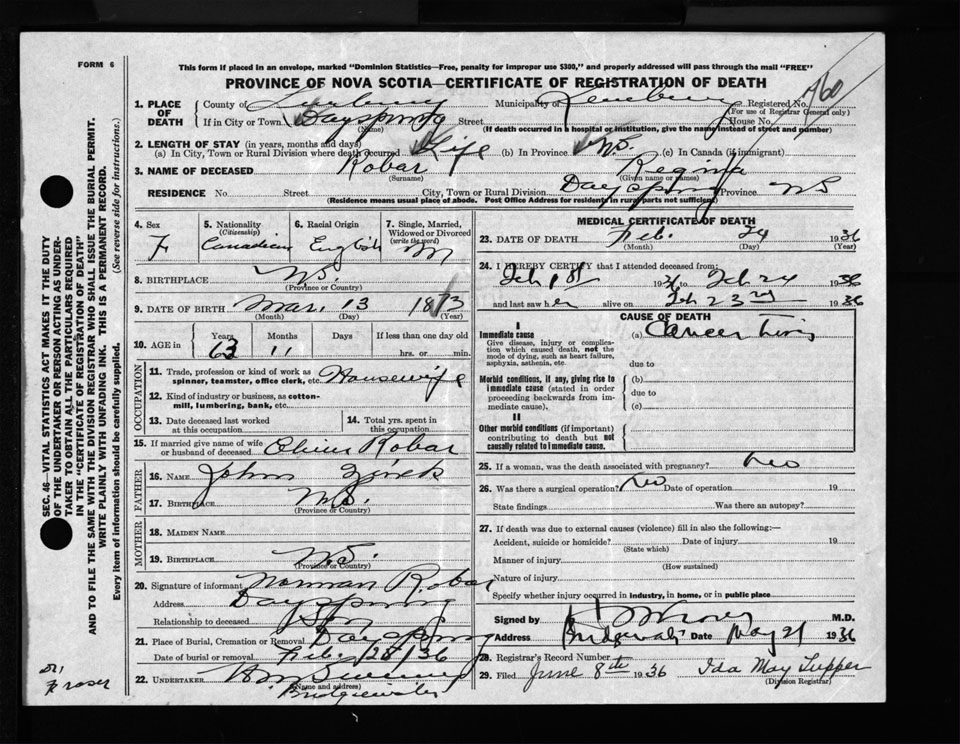 FORM 6
This form if placed in an envelope, marked "Dominion Statistics—Free, penalty for improper use $300," and properly addressed will pass through the mail "FREE"
PROVINCE OF NOVA SCOTIA—CERTIFICATE OF REGISTRATION OF DEATH
1. PLACE OF DEATH
County of Lunenburg Municipality of Lunenburg Registered No. 760
(For use of Registrar General only)
If in City or Town Dayspring Street House No.
(Name) (If death occurred in a hospital or institution, give the name instead of street and number)
2. LENGTH OF STAY (in years, months and days)
(a) In City, Town or Rural Division where death occurred Life (b) In Province N.S. (c) In Canada (if immigrant)
3. NAME OF DECEASED Robar Regina
(Surname) (Given name or names)
RESIDENCE No. Street City, Town or Rural Division Dayspring Province NS
(Residence means usual place of abode. Post Office Address for residents in rural parts not sufficient)
4. Sex F
5. Nationality (Citizenship) Canadian
6. Racial Origin English
7. Single, Married, Widowed or Divorced (write the word) M
8. BIRTHPLACE N.S.
(Province or Country)
9. DATE OF BIRTH Mar. 13 1873
(Month) (Day) (Year)
10. AGE in Years 63 Months 11 Days If less than one day old
hrs. or min.
OCCUPATION
11. Trade, profession or kind of work as spinner, teamster, office clerk, etc. Housewife
12. Kind of industry or business, as cotton-mill, lumbering, bank, etc.
13. Date deceased last worked at this occupation
14. Total yrs. spent in this occupation
15. If married give name of wife or husband of deceased Robar
FATHER
16. NAME John Zinck
17. BIRTHPLACE N.S.
(Province or Country)
MOTHER
18. MAIDEN NAME
19. BIRTHPLACE N.S.
(Province or Country)
20. Signature of informant Norman Robar
Address Dayspring
Relationship to deceased Son
21. Place of Burial, Cremation or Removal Dayspring
Date of burial or removal Feb. 26/36
22. UNDERTAKER
(Name and address)
Bridgewater
MEDICAL CERTIFICATE OF DEATH
23. DATE OF DEATH Feb. 24 1936
(Month) (Day) (Year)
24. I HEREBY CERTIFY that I attended deceased from:
Feb 1st 1936 to Feb 24 1936
and last saw her alive on Feb 23rd 1936
CAUSE OF DEATH
I
Immediate cause
Give disease, injury or complication which caused death, not the mode of dying, such as heart failure, asphyxia, asthenia, etc.
(a) Cancer
due to
Morbid conditions, if any, giving rise to immediate cause (stated in order proceeding backwards from immediate cause).
(b)
due to
(c)
II
Other morbid conditions (if important) contributing to death but not causally related to immediate cause.
25. If a woman, was the death associated with pregnancy? No
26. Was there a surgical operation? No Date of operation 19
State findings Was there an autopsy?
27. If death was due to external causes (violence) fill in also the following:—
Accident, suicide or homicide? Date of injury 19
(State which)
Manner of injury
(How sustained)
Nature of injury
Specify whether injury occurred in industry, in home, or in public place
Signed by M.D.
Address Bridgewater Date May 21 1936
28. Registrar's Record Number
29. Filed June 8th 1936 Ida May Tupper
(Division Registrar)
SEC. 46—VITAL STATISTICS ACT MAKES IT THE DUTY
OF THE UNDERTAKER OR PERSON ACTING AS UNDER-
TAKER TO OBTAIN ALL THE PARTICULARS REQUIRED
IN THE "CERTIFICATE OF REGISTRATION OF DEATH"
AND TO FILE THE SAME WITH THE DIVISION REGISTRAR WHO SHALL ISSUE THE BURIAL PERMIT.
WRITE PLAINLY WITH UNFADING INK. THIS IS A PERMANENT RECORD.
Every item of information should be carefully supplied. (See reverse side for instructions.)
Dr.
Fraser